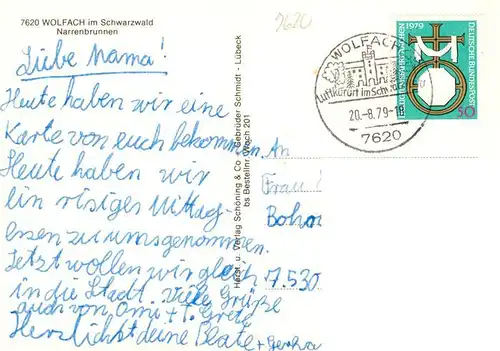 7620 WOLFACH im Schwarzwald
Narrenbrunnen
7620
Liebe Mama!
Heute haben wir eine
Karte von euch bekommen
Heute haben wir
ein risiges Mittag-
essen zu uns genommen.
Jetzt wollen wir gleich
in die Stadt. Viele Grüße
auch von Omi + T. Greta
Herzlichst deine Beate +
Herst. u. Verlag Schöning & Co + Gebrüder Schmidt - Lübeck
bs Bestellnr. Wlach 201
WOLFACH
Luftkurort im Schwarzwald
20.-8.79-18
7620
1979
DEUTSCHE BUNDESPOST
50
An
Frau
7.530